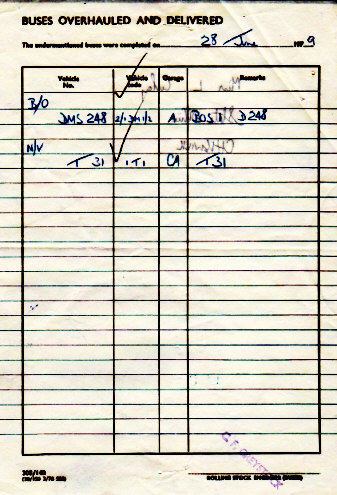 BUSES OVERHAULED AND DELIVERED
The undermentioned buses were completed on 28 June 1979
Vehicle No. Vehicle code Garage Remarks
B/O
DMS 248 2/1DM1/2 A BOS 1 D248
N/V
T 31 1T1 CA T31
C. F. GREYSTOCK
ROLLING STOCK ENGINEER (BUSES)